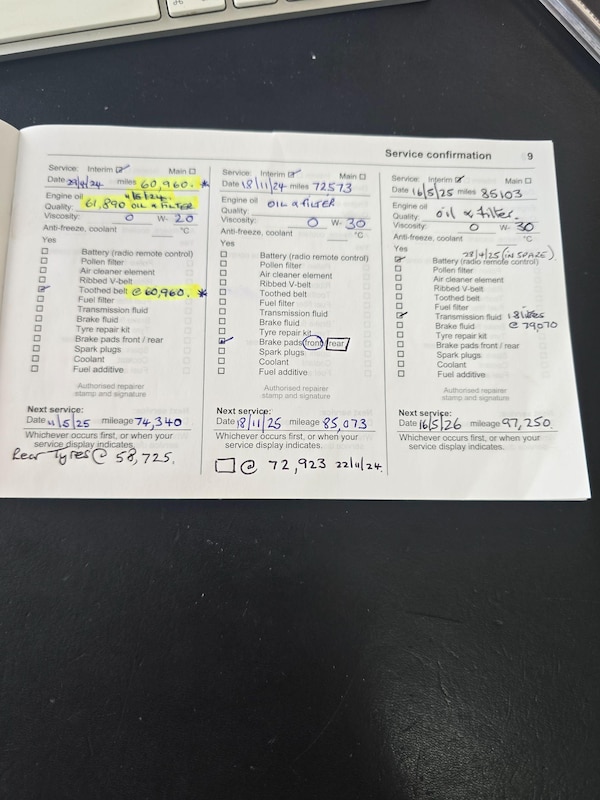 Service confirmation 9
Service: Interim ☑ Main ☐
Date 29/4/24 miles 60,960. *
11/5/24.
Engine oil
Quality: 61,890 OIL & FILTER
Viscosity: 0 W- 20
Anti-freeze, coolant °C
Yes
☐ Battery (radio remote control)
☐ Pollen filter
☐ Air cleaner element
☐ Ribbed V-belt
☑ Toothed belt @ 60,960. *
☐ Fuel filter
☐ Transmission fluid
☐ Brake fluid
☐ Tyre repair kit
☐ Brake pads front / rear
☐ Spark plugs
☐ Coolant
☐ Fuel additive
Authorised repairer
stamp and signature
Next service:
Date 11/5/25 mileage 74,340
Whichever occurs first, or when your
service display indicates.
Rear Tyres @ 58,725.
Service: Interim ☑ Main ☐
Date 18/11/24 miles 72573
Engine oil
Quality OIL & FILTER
Viscosity: 0 W- 30
Anti-freeze, coolant °C
Yes
☐ Battery (radio remote control)
☐ Pollen filter
☐ Air cleaner element
☐ Ribbed V-belt
☐ Toothed belt
☐ Fuel filter
☐ Transmission fluid
☐ Brake fluid
☐ Tyre repair kit
☑ Brake pads front / rear
☐ Spark plugs
☐ Coolant
☐ Fuel additive
Authorised repairer
stamp and signature
Next service:
Date 18/11/25 mileage 85,073
Whichever occurs first, or when your
service display indicates.
☐ @ 72,923 22/11/24.
Service: Interim ☑ Main ☐
Date 16/5/25 miles 85103
Engine oil
Quality: oil & filter.
Viscosity: 0 W- 30
Anti-freeze, coolant °C
Yes 28/4/25 (IN SPARE)
☑ Battery (radio remote control)
☐ Pollen filter
☐ Air cleaner element
☐ Ribbed V-belt
☐ Toothed belt
☐ Fuel filter
☑ Transmission fluid
☐ Brake fluid @ 79070
☐ Tyre repair kit
☐ Brake pads front / rear
☐ Spark plugs
☐ Coolant
☐ Fuel additive
Authorised repairer
stamp and signature
Next service:
Date 16/5/26 mileage 97,250.
Whichever occurs first, or when your
service display indicates.